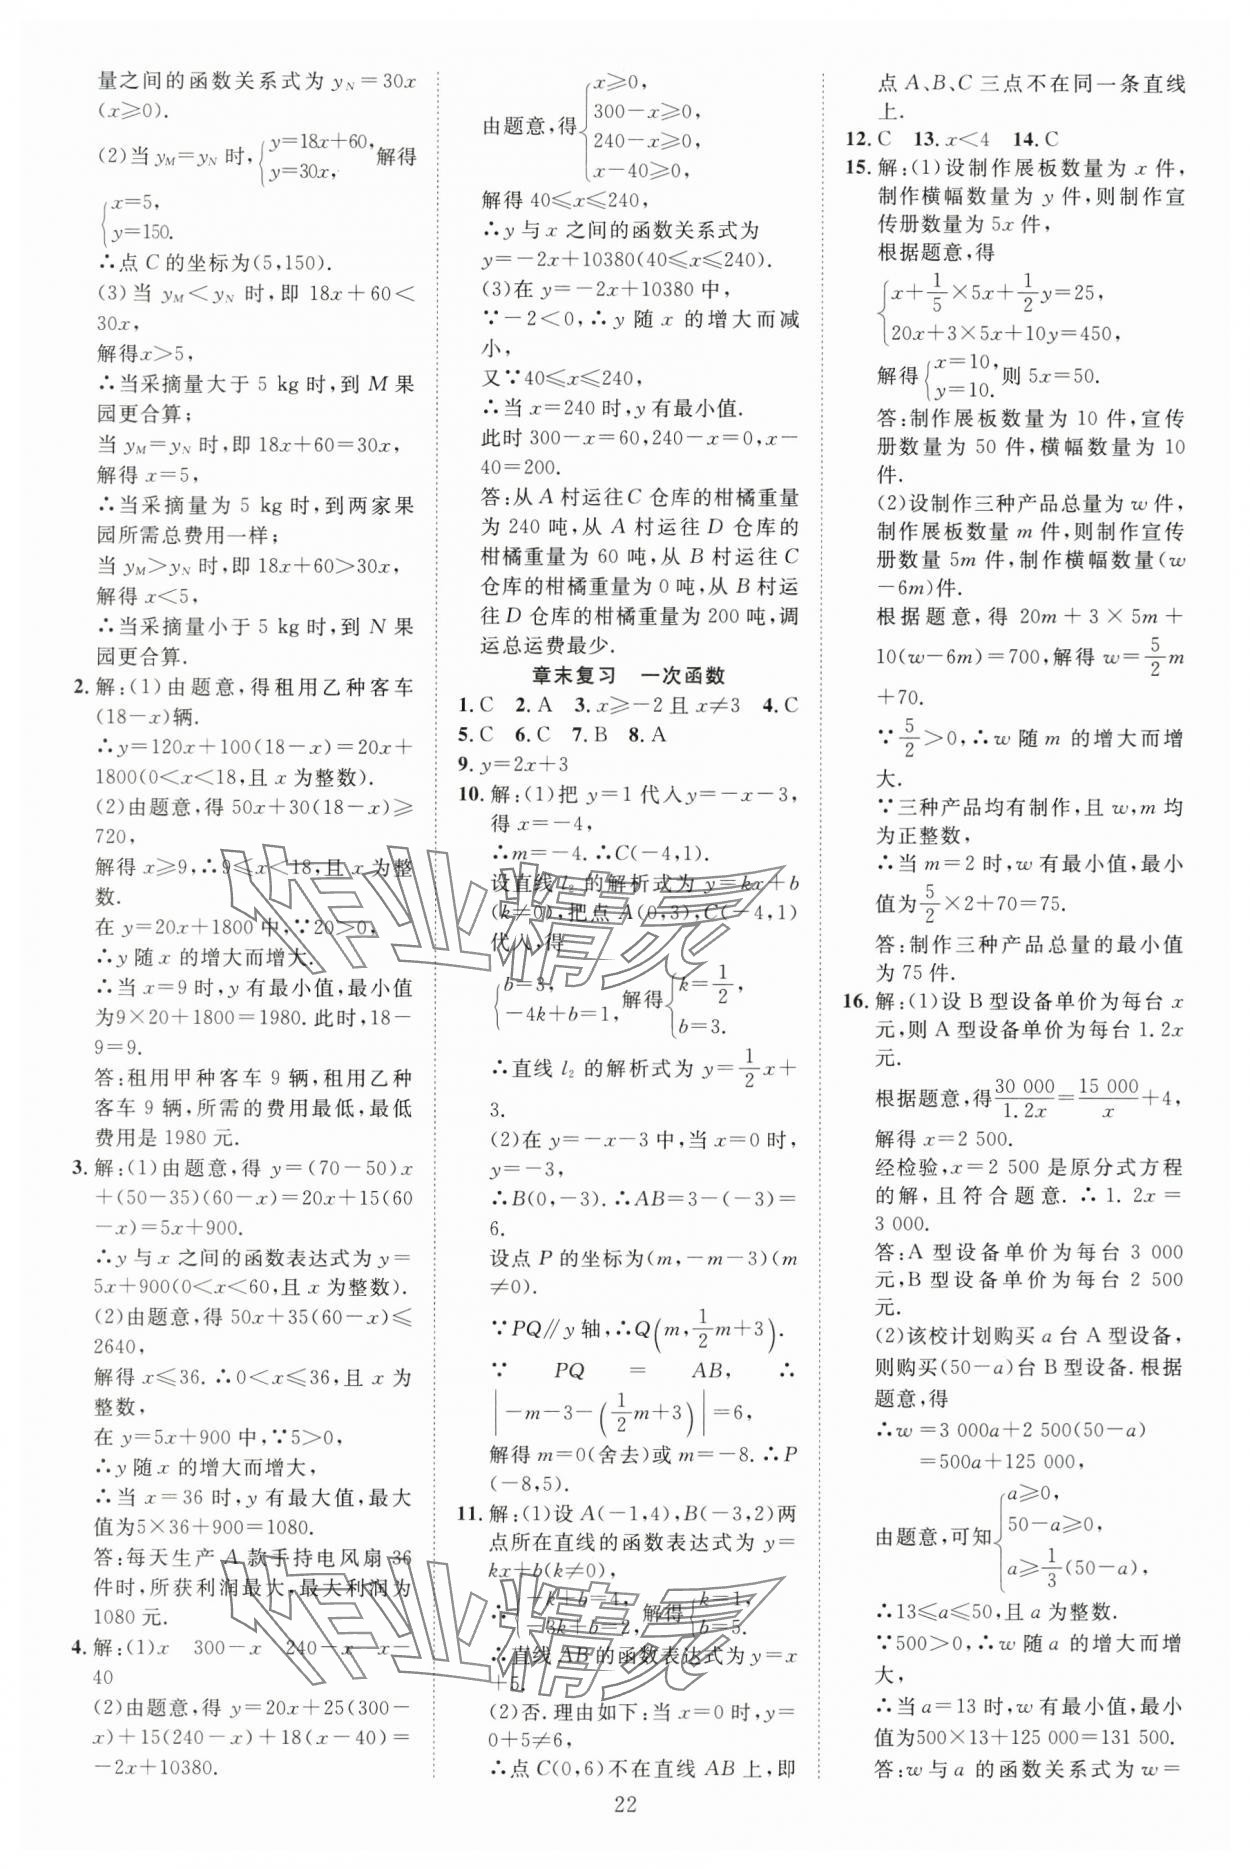 量之间的函数关系式为 y_N＝30x
(x≥0).
(2)当 y_M＝y_N 时,{y=18x+60, y=30x, 解得
{x=5, y=150.
∴点 C 的坐标为(5,150).
(3)当 y_M＜y_N 时,即 18x＋60＜
30x,
解得x＞5,
∴当采摘量大于 5 kg 时,到 M 果
园更合算;
当 y_M＝y_N 时,即 18x＋60＝30x,
解得 x＝5,
∴当采摘量为 5 kg 时,到两家果
园所需总费用一样;
当 y_M＞y_N 时,即 18x＋60＞30x,
解得 x＜5,
∴当采摘量小于 5 kg 时,到 N 果
园更合算.
2. 解:(1)由题意,得租用乙种客车
(18－x)辆.
∴y＝120x＋100(18－x)＝20x＋
1800(0＜x＜18,且 x 为整数).
(2)由题意,得 50x＋30(18－x)≥
720,
解得 x≥9,∴9≤x＜18,且 x 为整
数.
在 y＝20x＋1800 中,∵20＞0,
∴y 随 x 的增大而增大.
∴当 x＝9 时,y 有最小值,最小值
为9×20＋1800＝1980. 此时,18－
9＝9.
答:租用甲种客车 9 辆,租用乙种
客车 9 辆,所需的费用最低,最低
费用是 1980 元.
3. 解:(1)由题意,得 y＝(70－50)x
＋(50－35)(60－x)＝20x＋15(60
－x)＝5x＋900.
∴y 与 x 之间的函数表达式为 y＝
5x＋900(0＜x＜60,且 x 为整数).
(2)由题意,得 50x＋35(60－x)≤
2640,
解得 x≤36. ∴0＜x≤36,且 x 为
整数,
在 y＝5x＋900 中,∵5＞0,
∴y 随 x 的增大而增大,
∴当 x＝36 时,y 有最大值,最大
值为5×36＋900＝1080.
答:每天生产 A 款手持电风扇 36
件时,所获利润最大,最大利润为
1080 元.
4. 解:(1)x 300－x 240－x x－
40
(2)由题意,得 y＝20x＋25(300－
x)＋15(240－x)＋18(x－40)＝
－2x＋10380.
由题意,得{x≥0, 300－x≥0, 240－x≥0, x－40≥0,
解得 40≤x≤240,
∴y 与 x 之间的函数关系式为
y＝－2x＋10380(40≤x≤240).
(3)在 y＝－2x＋10380 中,
∵－2＜0,∴y 随 x 的增大而减
小,
又∵40≤x≤240,
∴当 x＝240 时,y 有最小值.
此时 300－x＝60,240－x＝0,x－
40＝200.
答:从 A 村运往 C 仓库的柑橘重量
为 240 吨,从 A 村运往 D 仓库的
柑橘重量为 60 吨,从 B 村运往 C
仓库的柑橘重量为 0 吨,从 B 村运
往 D 仓库的柑橘重量为 200 吨,调
运总运费最少.
章末复习 一次函数
1. C 2. A 3. x≥－2 且 x≠3 4. C
5. C 6. C 7. B 8. A
9. y＝2x＋3
10. 解:(1)把 y＝1 代入y＝－x－3,
得 x＝－4,
∴m＝－4. ∴C(－4,1).
设直线 l₂ 的解析式为 y＝kx＋b
(k≠0),把点 A(0,3),C(－4,1)
代入,得
{b=3, －4k+b=1, 解得{k=1/2, b=3.
∴直线 l₂ 的解析式为 y＝1/2x＋
3.
(2)在 y＝－x－3 中,当 x＝0 时,
y＝－3,
∴B(0,－3). ∴AB＝3－(－3)＝
6.
设点 P 的坐标为(m,－m－3)(m
≠0).
∵PQ∥y 轴,∴Q(m,1/2m+3).
∵ PQ ＝ AB, ∴
|－m－3－(1/2m+3)|＝6,
解得 m＝0(舍去)或 m＝－8. ∴P
(－8,5).
11. 解:(1)设 A(－1,4),B(－3,2)两
点所在直线的函数表达式为 y＝
kx＋b(k≠0),
∴{－k+b=4, －3k+b=2, 解得{k=1, b=5.
∴直线 AB 的函数表达式为 y＝x
＋5.
(2)否. 理由如下:当 x＝0 时,y＝
0＋5≠6,
∴点 C(0,6)不在直线 AB 上,即
点 A、B、C 三点不在同一条直线
上.
12. C 13. x＜4 14. C
15. 解:(1)设制作展板数量为 x 件,
制作横幅数量为 y 件,则制作宣
传册数量为 5x 件,
根据题意,得
{x+1/5×5x+1/2y=25, 20x+3×5x+10y=450,
解得{x=10, y=10. 则 5x＝50.
答:制作展板数量为 10 件,宣传
册数量为 50 件,横幅数量为 10
件.
(2)设制作三种产品总量为 w 件,
制作展板数量 m 件,则制作宣传
册数量 5m 件,制作横幅数量(w
－6m)件.
根据题意,得 20m＋3×5m＋
10(w－6m)＝700,解得 w＝5/2m
＋70.
∵5/2＞0,∴w 随 m 的增大而增
大.
∵三种产品均有制作,且 w,m 均
为正整数,
∴当 m＝2 时,w 有最小值,最小
值为5/2×2＋70＝75.
答:制作三种产品总量的最小值
为 75 件.
16. 解:(1)设 B 型设备单价为每台 x
元,则 A 型设备单价为每台 1.2x
元.
根据题意,得30 000/1.2x＝15 000/x＋4,
解得 x＝2 500.
经检验,x＝2 500 是原分式方程
的解,且符合题意. ∴1. 2x＝
3 000.
答:A 型设备单价为每台 3 000
元,B 型设备单价为每台 2 500
元.
(2)该校计划购买 a 台 A 型设备,
则购买(50－a)台 B 型设备. 根据
题意,得
∴w＝3 000a＋2 500(50－a)
＝500a＋125 000,
由题意,可知{a≥0, 50－a≥0, a≥1/3(50－a),
∴13≤a≤50,且 a 为整数.
∵500＞0,∴w 随 a 的增大而增
大,
∴当 a＝13 时,w 有最小值,最小
值为500×13＋125 000＝131 500.
答:w 与 a 的函数关系式为 w＝
22
作业精灵
作业精灵